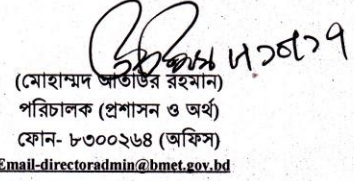 (মোহাম্মদ আতাউর রহমান)
পরিচালক (প্রশাসন ও অর্থ)
ফোন- ৮৩০০২৬৪ (অফিস)
Email-directoradmin@bmet.gov.bd